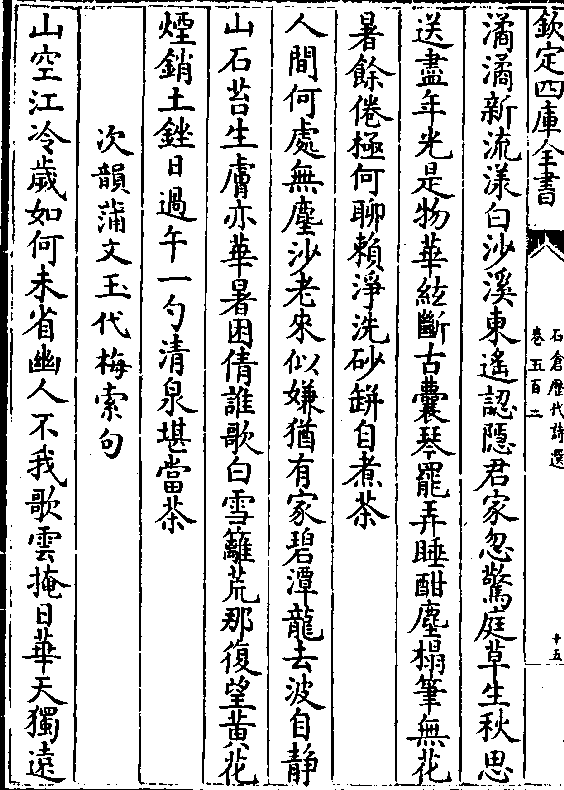 欽定四庫全書
石倉歷代詩選
卷五百二
十五
潏潏新流漾白沙溪東遙認隱君家忽驚庭草生秋思
送盡年光是物華絃斷古囊琴罷弄睡酣塵榻筆無花
暑餘倦極何聊賴淨洗砂缾自煮茶
人間何處無塵沙老來似嫌猶有家碧潭龍去波自靜
山石苔生膚亦華暑困倩誰歌白雪籬荒那復望黃花
煙銷土銼日過午一勺清泉堪當茶
次韻蒲文玉代梅索句
山空江冷歲如何未省幽人不我歌雲掩日華天獨遠